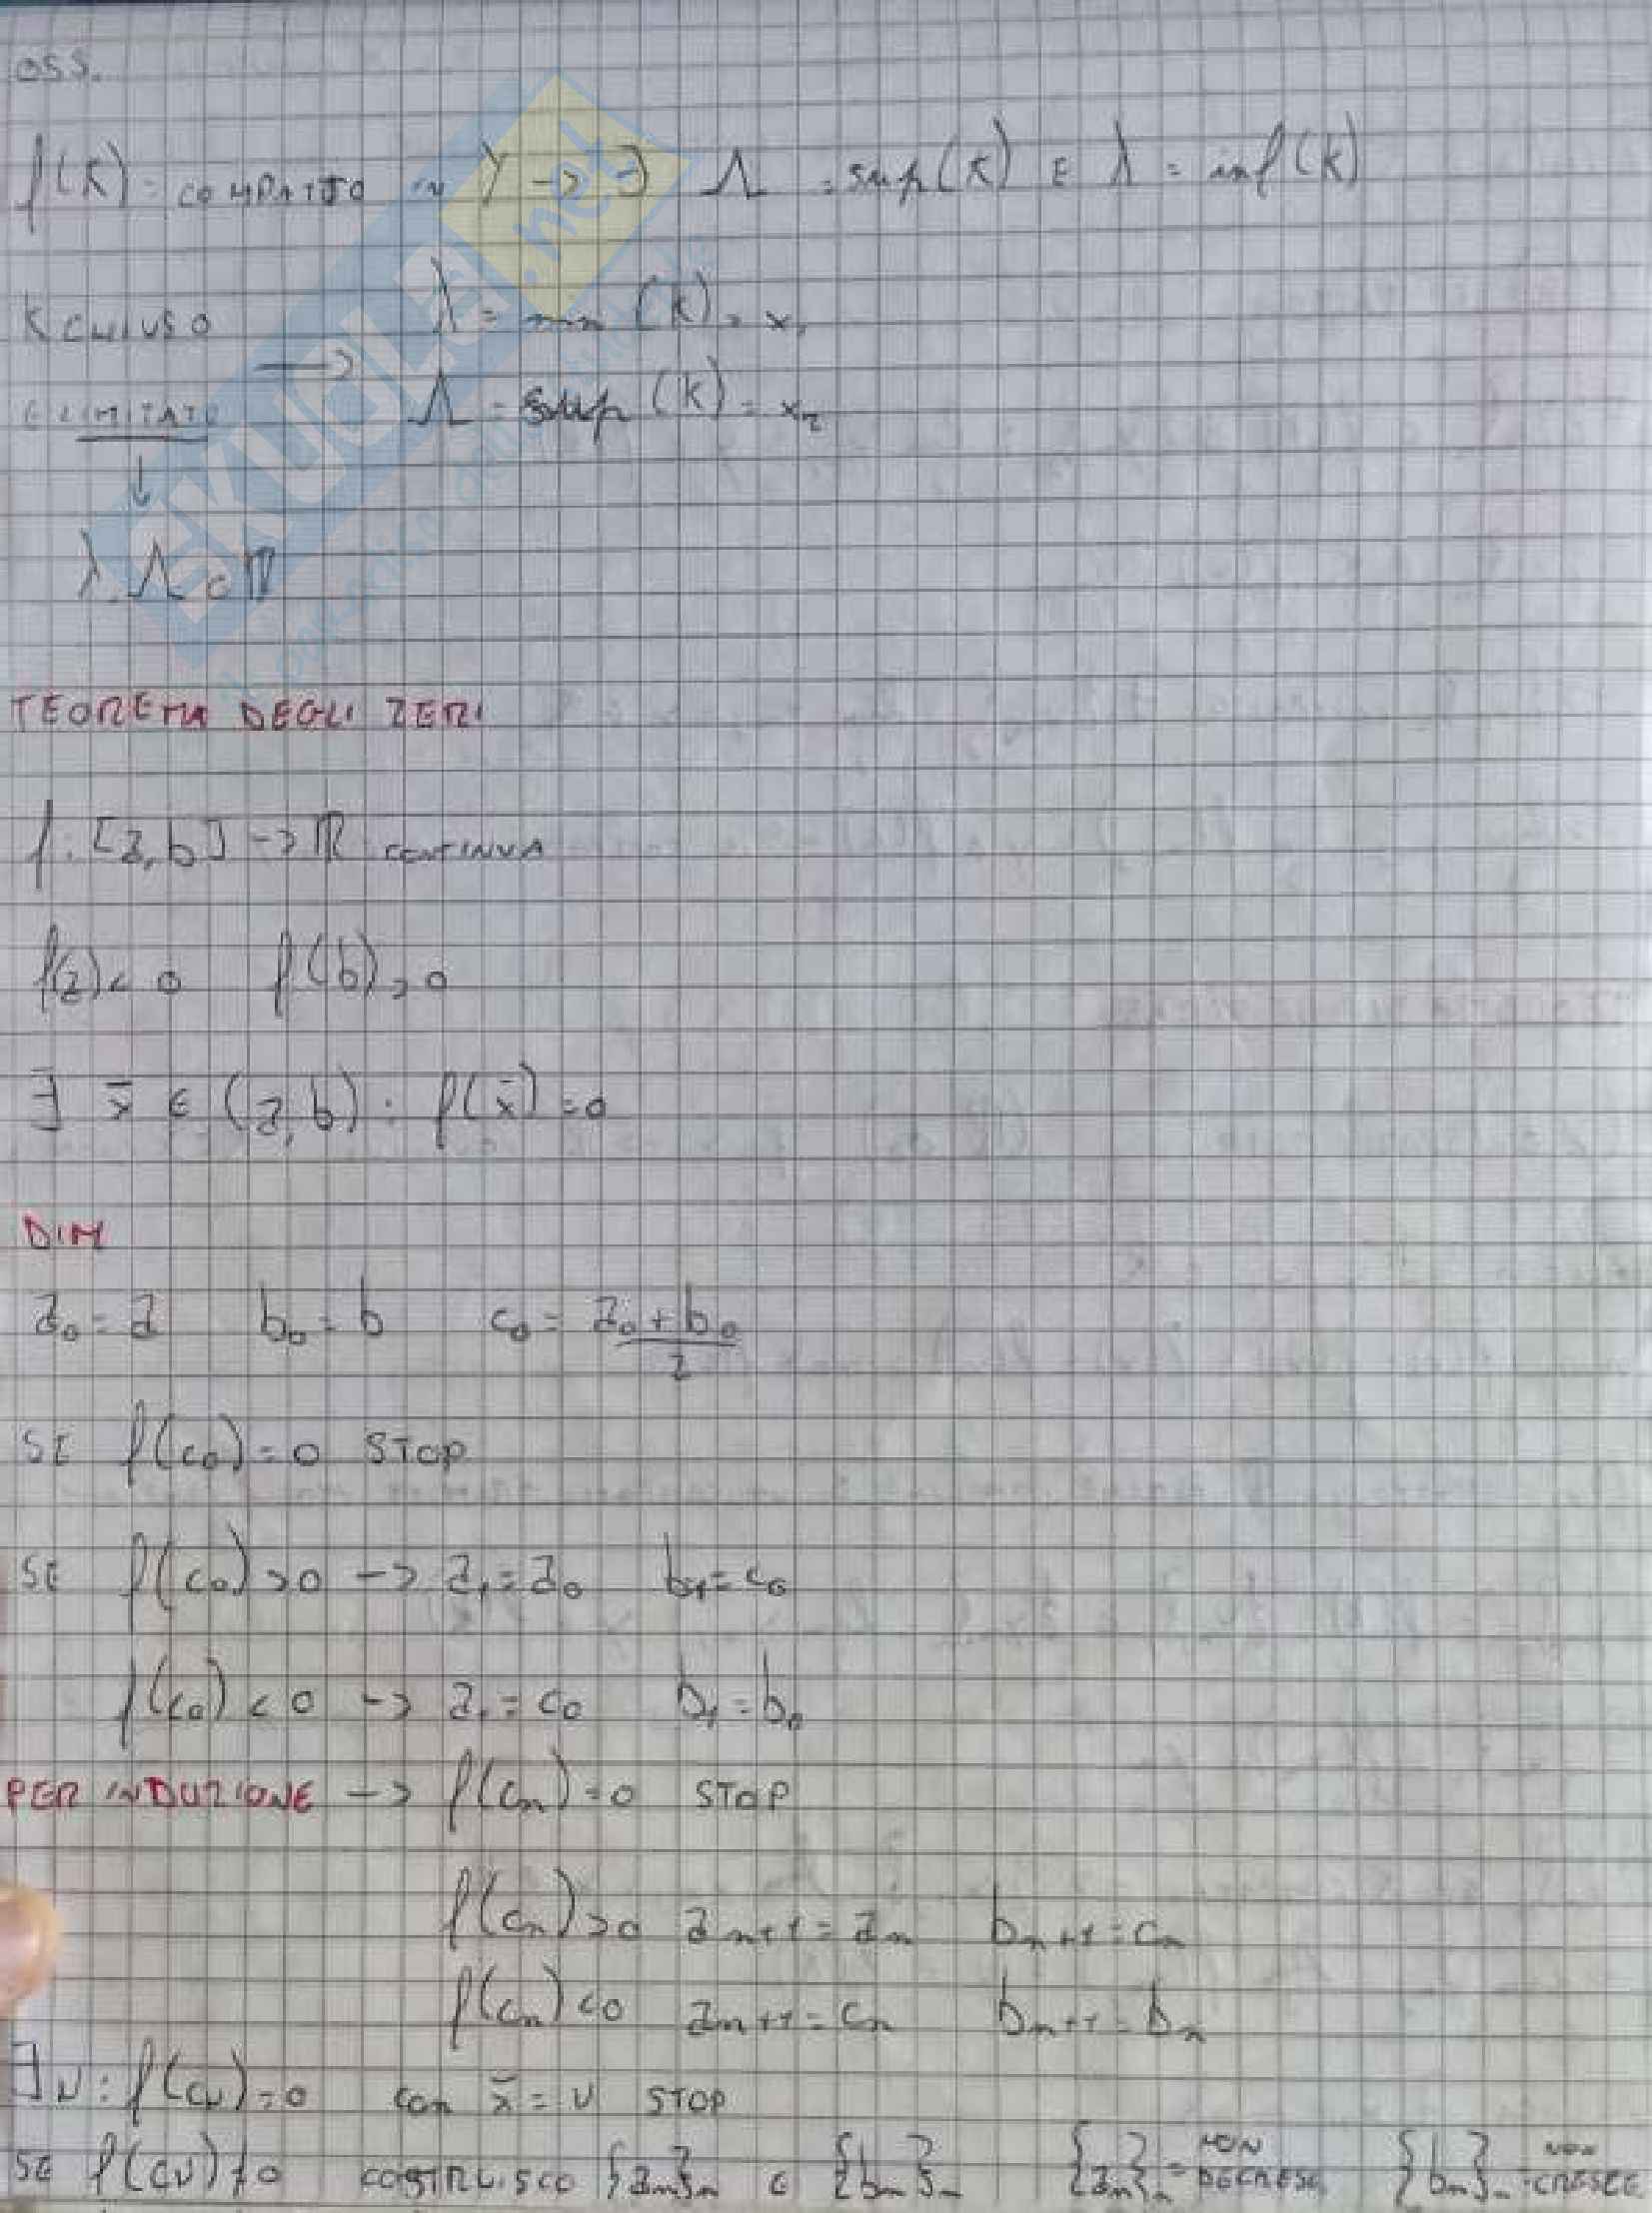 OSS.
f(K) = COMPATTO IN Y -> ∃ Λ = sup(K) E λ = inf(K)
K CHIUSO λ = min (K) = x₁
->
E LIMITATO Λ = sup (K) = x₂
↓
λ, Λ ∈ ℝ
SKUOLA.net
TEOREMA DEGLI ZERI
f: [a,b] -> ℝ CONTINUA
f(a) < 0 f(b) > 0
∃ x̄ ∈ (a,b) : f(x̄) = 0
DIM
a₀ = a b₀ = b c₀ = (a₀ + b₀)/2
SE f(c₀) = 0 STOP
SE f(c₀) > 0 -> a₁ = a₀ b₁ = c₀
f(c₀) < 0 -> a₁ = c₀ b₁ = b₀
PER INDUZIONE -> f(cₙ) = 0 STOP
f(cₙ) > 0 aₙ₊₁ = aₙ bₙ₊₁ = cₙ
f(cₙ) < 0 aₙ₊₁ = cₙ bₙ₊₁ = bₙ
∃ ν : f(c_ν) = 0 con x̄ = ν STOP
SE f(c_ν) ≠ 0 COSTRUISCO {aₙ}ₙ E {bₙ}ₙ {aₙ}ₙ = NON DECRESCE {bₙ}ₙ = NON CRESCE